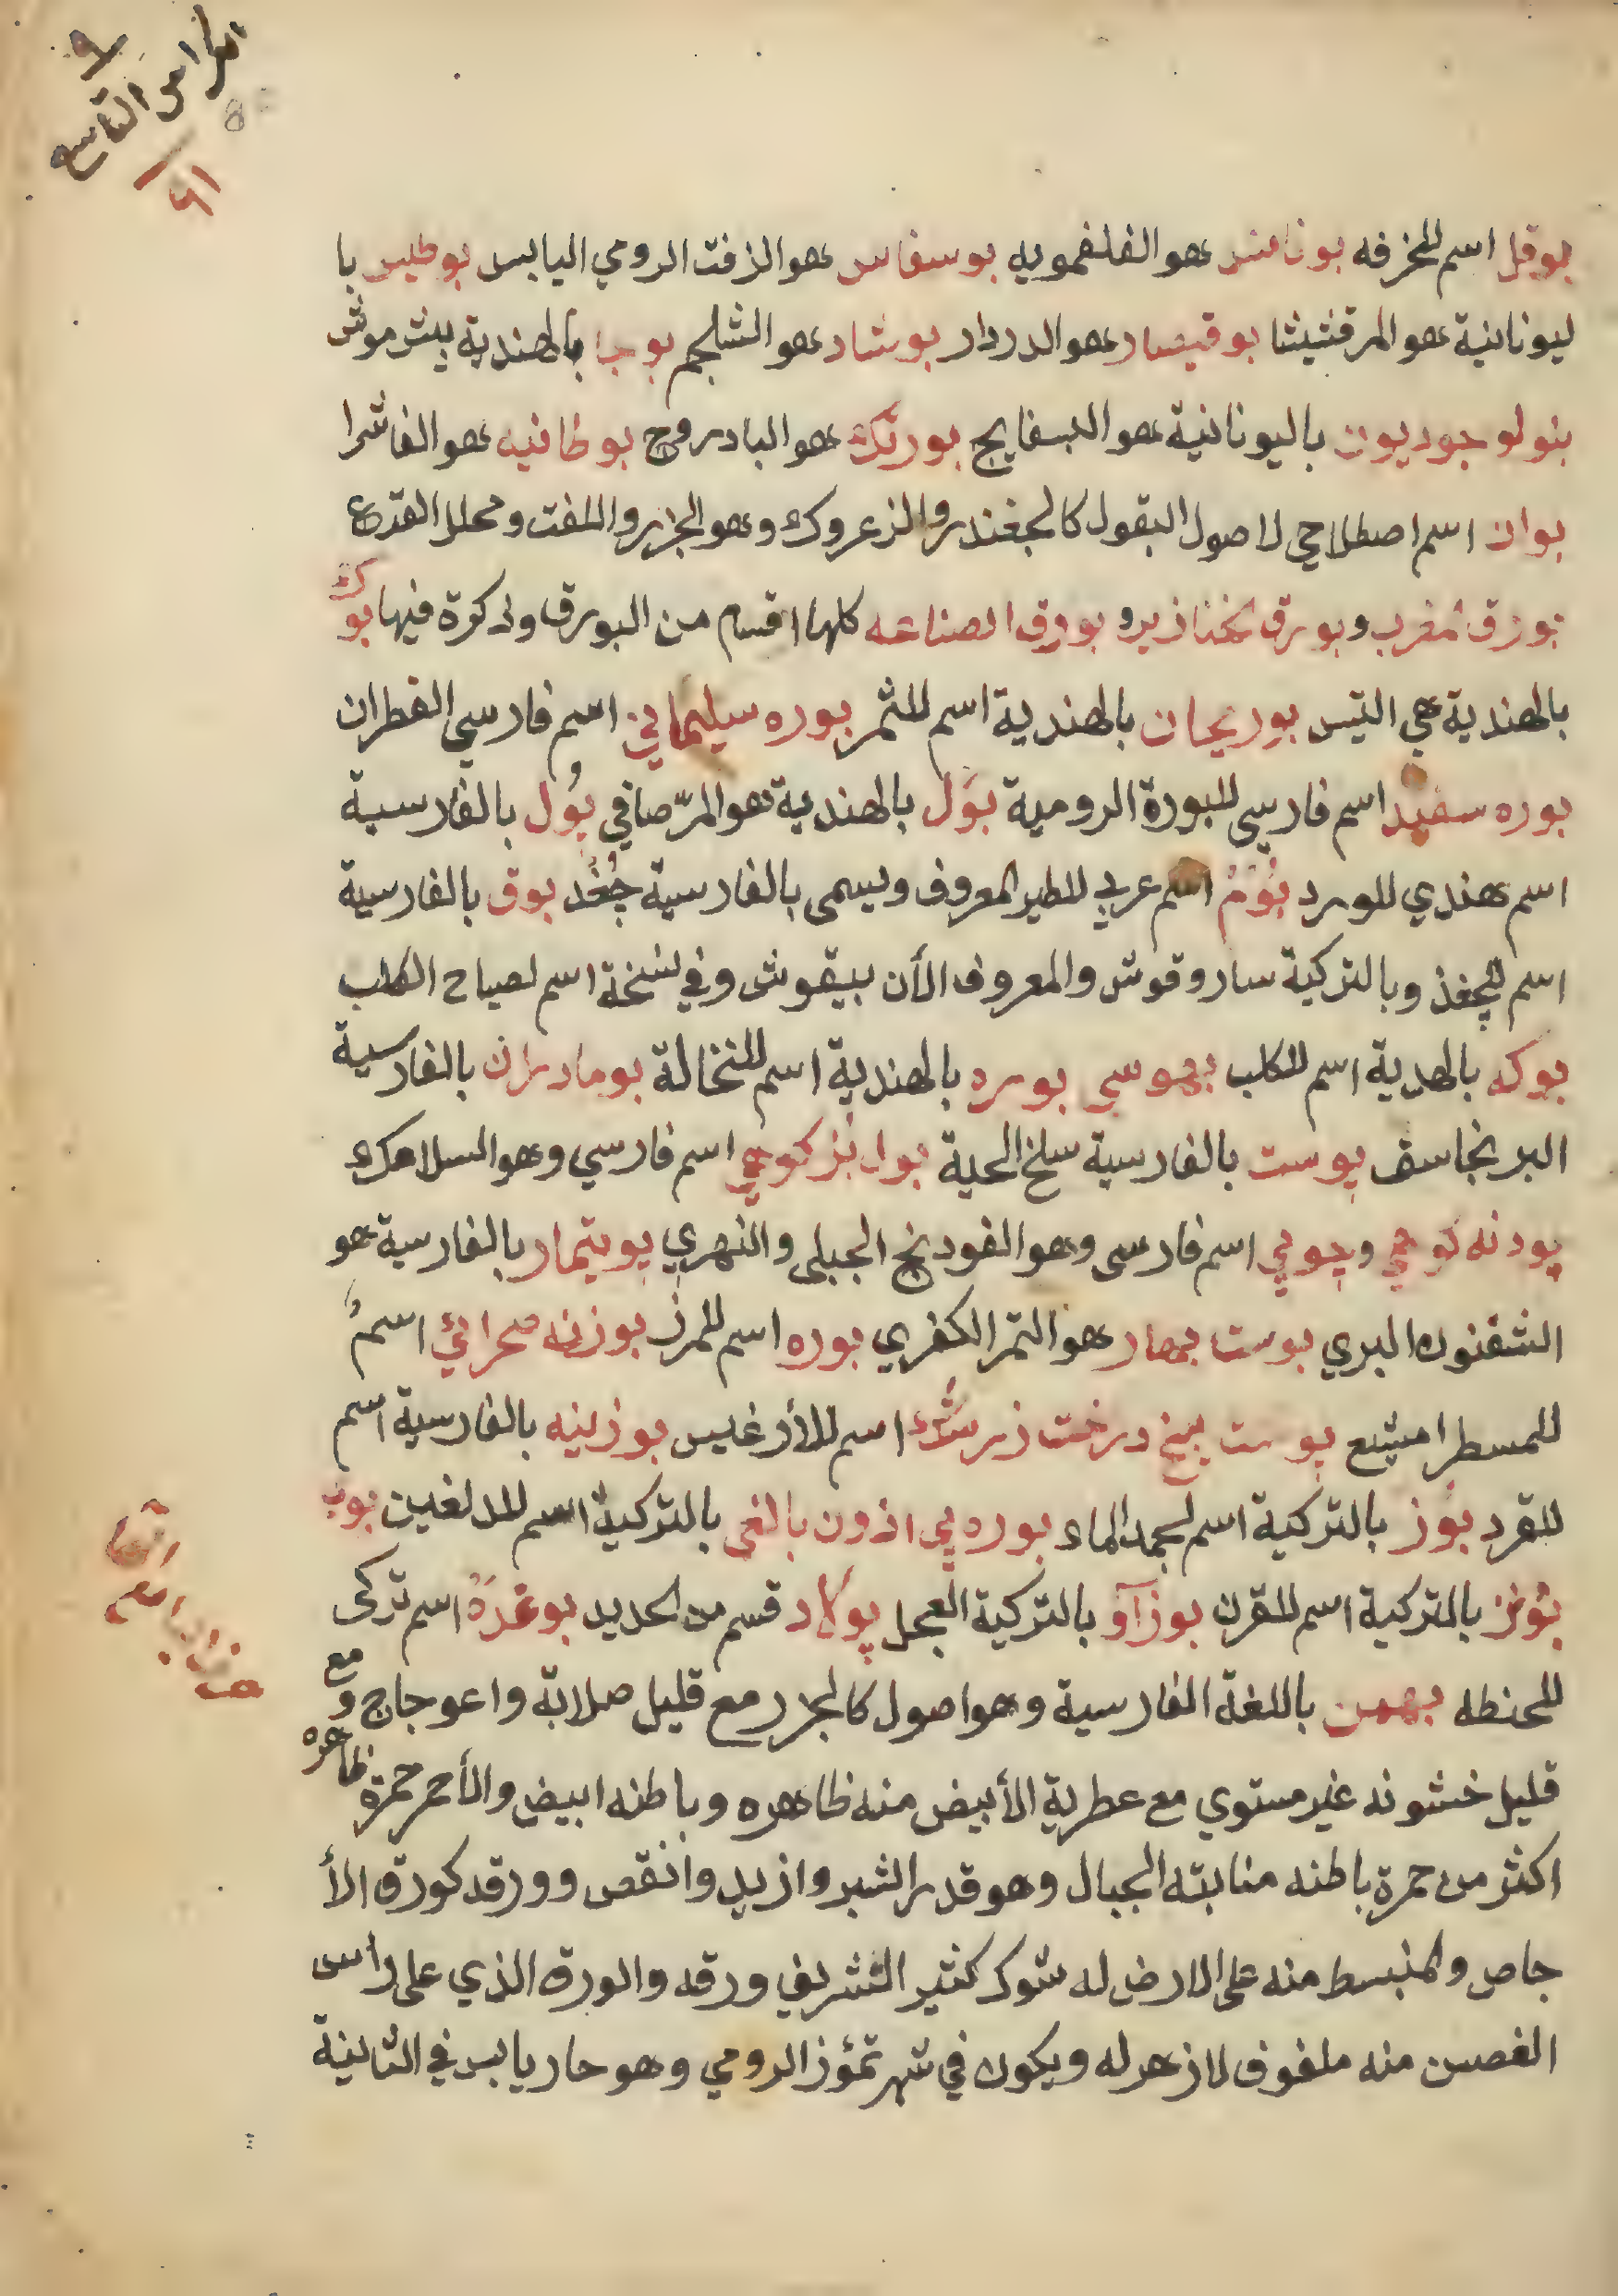 الكراس التاسع
٩
80
٤١
بوقل اسم للخزفه بونانس هو الفلفمويه بوسفاس هو الزفت الرومي اليابس بوطيس با
ليونانية هو المرقشيشا بوقيصار هو الدردار بوشاد هو الشلجم بوجا بالهندية بيش موش
بنولوجوديون باليونانية هو البسفايج بورنك هو البادروج بوطانيه هو الفاشرا
بوان اسم اصطلاحي لاصول البقول كالجغندر والزعروك وهو الجزر واللفت ومحلل القدع
بورق مغرب وبورق لخنازير و بورق الصناعه كلها اقسام من البورق ولدكرة فيها بوكـ
بالهندية هي التيس بوريحان بالهندية اسم للثمر بوره سيليماني اسم فارسي القطران
بوره سفيد اسم فارسي للبورة الرومية بَوَل بالهندية هو المرّ صافي بُول بالفارسية
اسم هندي للورد بُوَمُ اسم عربي للطير المعروف ويسمى بالفارسية جُغُد بوق بالفارسية
اسم للجغذ وبالتركية ساروقوش والمعروف الأن بيقوش وفي نسخة اسم لصياح الكلب
بوكه بالهدية اسم للكلب بهوسي بوره بالهندية اسم للنخالة بومادران بالفارسية
البرنجاسف پوست بالفارسية سلخ الحية بول بُزكوهي اسم فارسي وهو السلاهك
پودنه كوهي وجويي اسم فارسى وهو الفودنج الجبلى والنهري بويتمار بالفارسية هو
الشفنون البري بوست بهار هو التمر الكفري بوره اسم للمرز بوزنه صحرائي اسمُ
للمسطرا مشيع پوست بيخ درخت زرشك اسم للأرغيس بوزنيه بالفارسية اسم
للقرد بُوز بالتركية اسم لجمد الماء بوره يي اذون بالغى بالتركية اسم للدلغين بوب
بُونز بالتركية اسم للقرن بوزآو بالتركية العجل پولاد قسم من الحديد بوغدَهْ اسم تركى
للحنطه بهمن باللغة الفارسية وهو اصول كالجزر مع قليل صلابة واعوجاج ومع
قليل خشونه غير مستوي مع عطرية الأبيض منه ظاهره وباطنه ابيض والأحمر حمرة ظاهره
اكثر من حمرة باطنه منابته الجبال وهو قدر الشبر وازيد وانقص وورقه كورق الأ
جاص والمنبسط منه على الارض له شوك كثير التشريف ورقه والورق الذي على راس
الغصن منه ملفوف لا زهر له ويكون في شهر تموز الرومي وهو حار يابس في الثانية